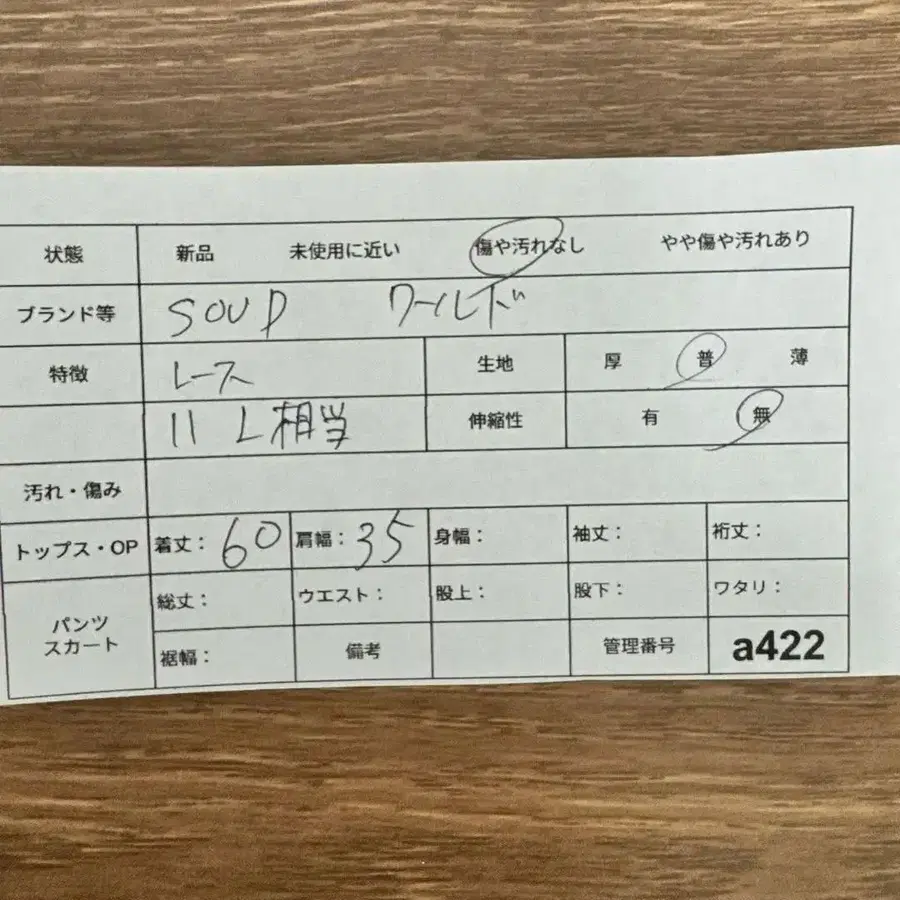 状態 新品 未使用に近い 傷や汚れなし やや傷や汚れあり
ブランド等 SOUP ワールド
特徴 レース 生地 厚 普 薄
11 L相当 伸縮性 有 無
汚れ・傷み
トップス・OP 着丈: 60 肩幅: 35 身幅: 袖丈: 裄丈:
パンツ スカート 総丈: ウエスト: 股上: 股下: ワタリ:
裾幅: 備考 管理番号 a422